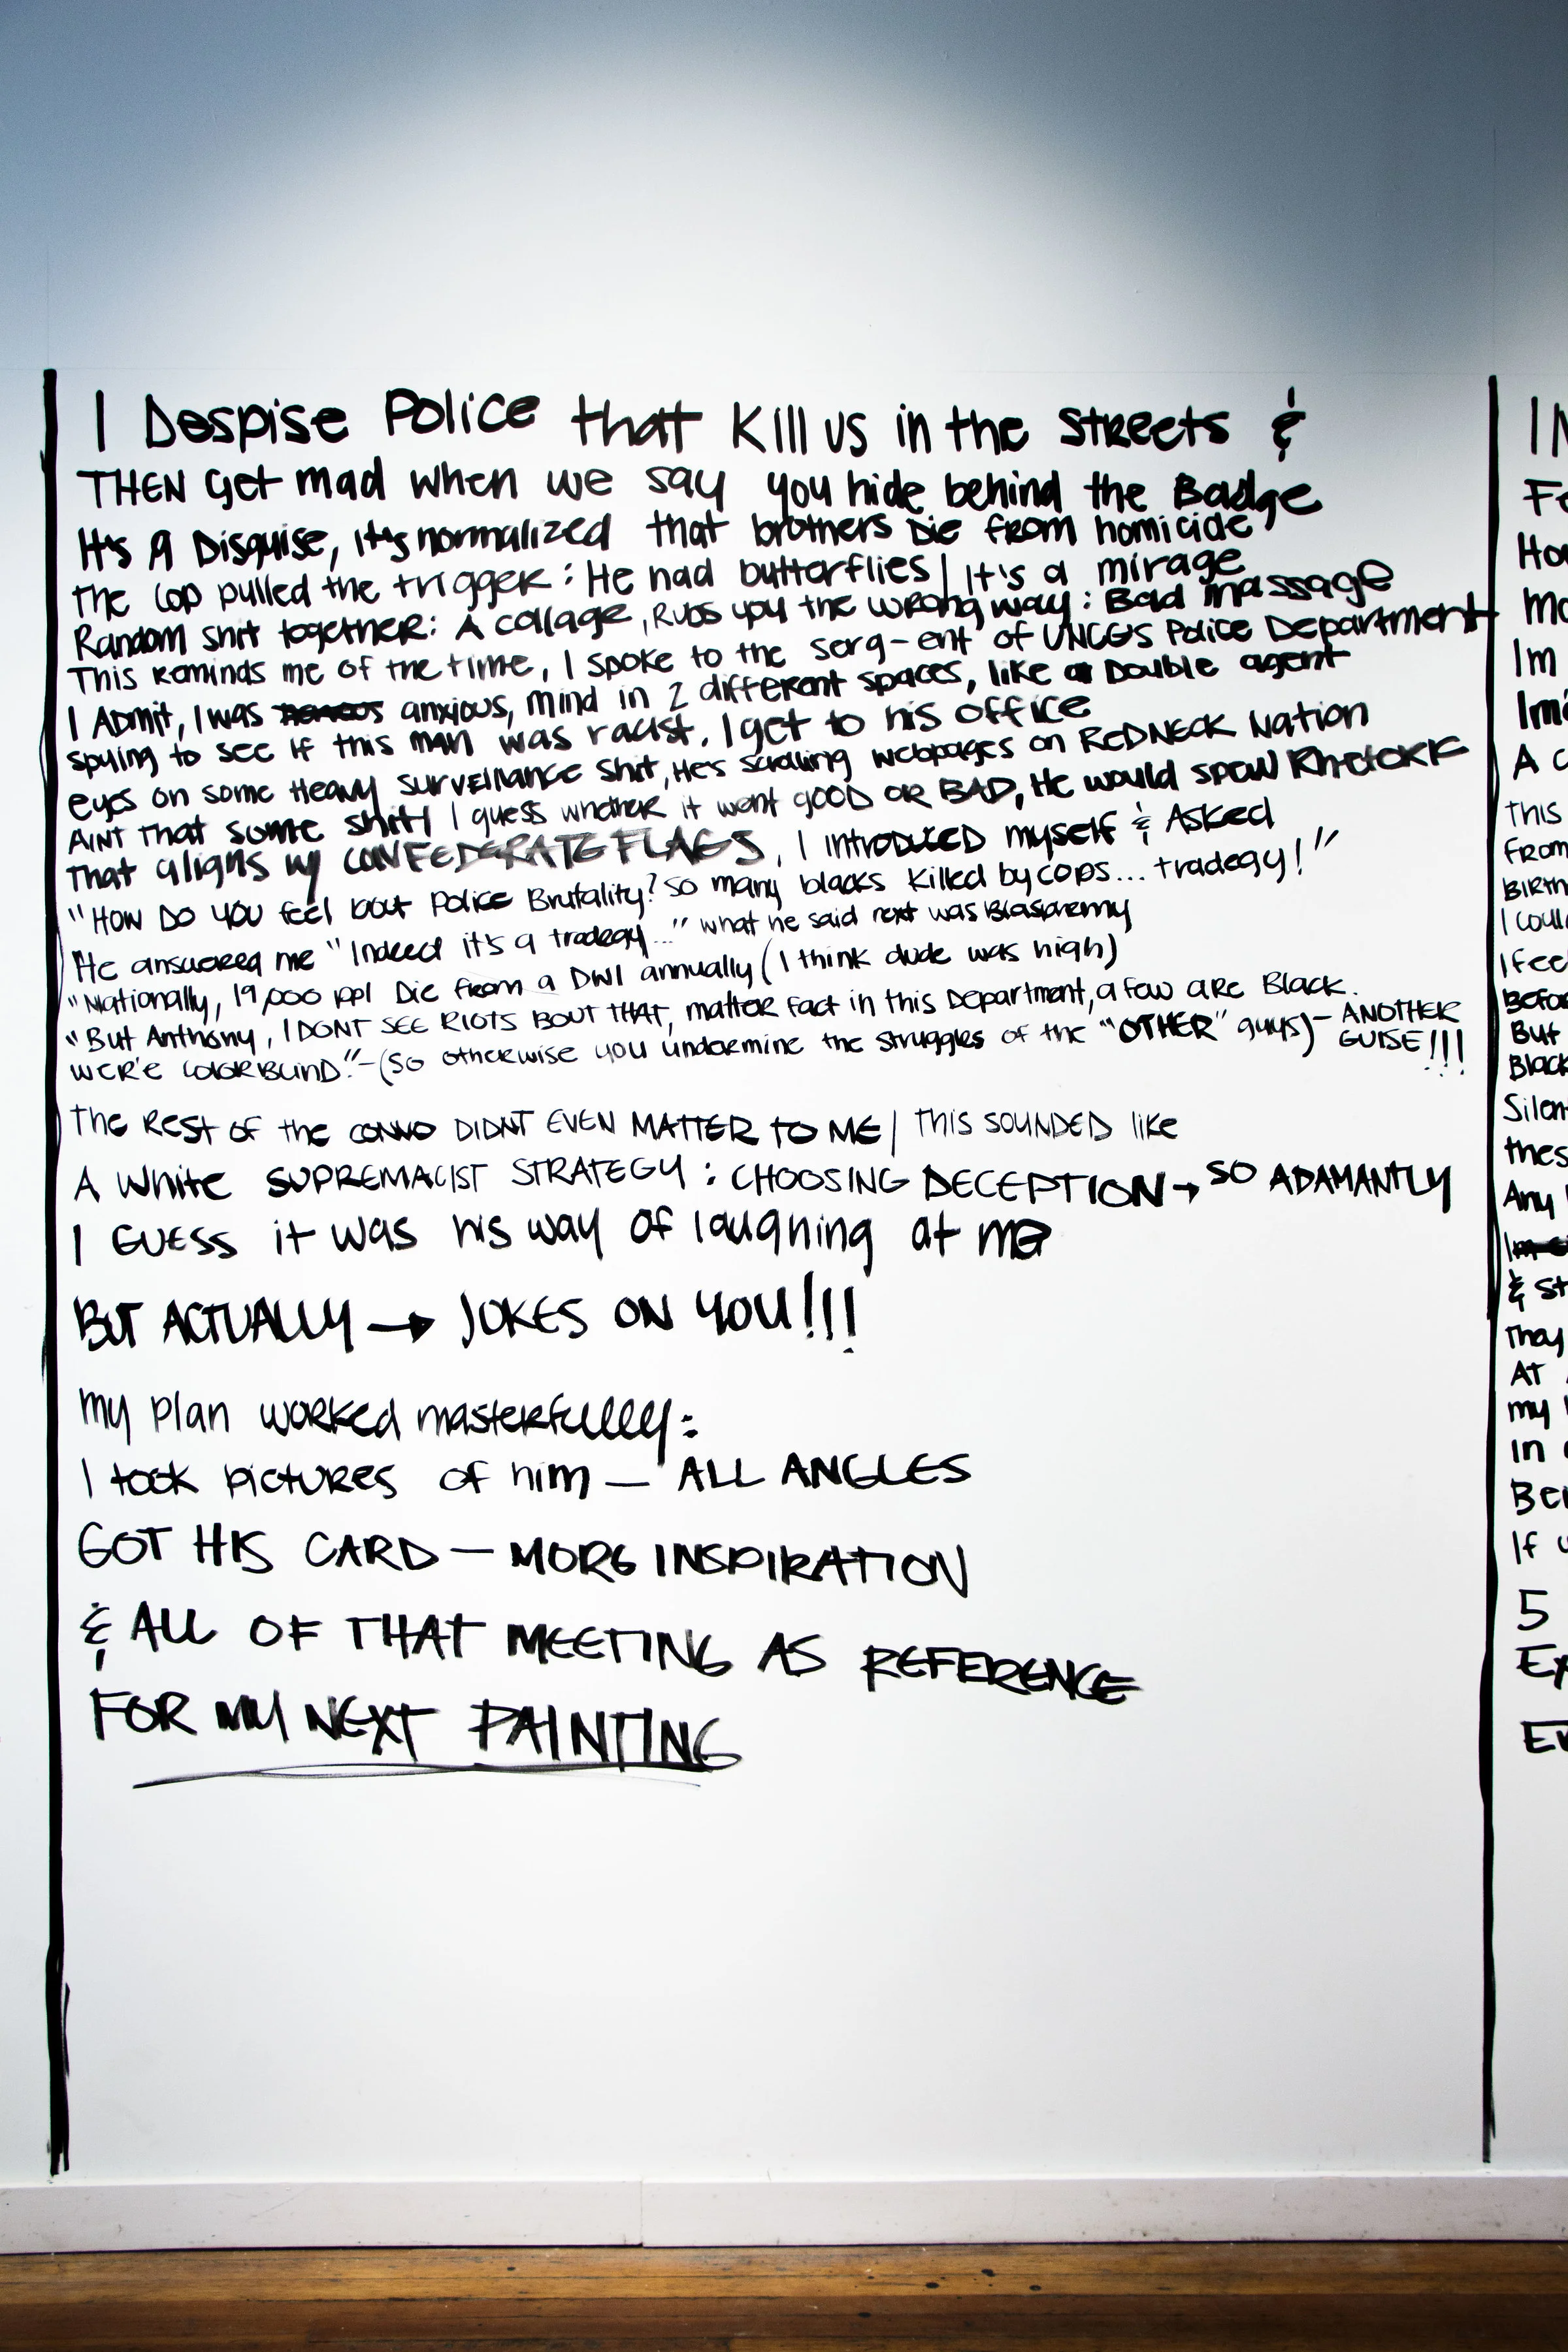 I Despise Police that Kill us in the Streets &
THEN Get mad when we say you hide behind the Badge
It's A Disguise, it's normalized that brothers Die from homicide
The Cop pulled the trigger: He had butterflies | It's a mirage
Random shit together: A collage, Rubs you the wrong way: Bad massage
This reminds me of the time, I spoke to the serg-ent of UNCG's Police Department
I Admit, I was anxious, mind in 2 different spaces, like a Double agent
spying to see if this man was racist. I get to his office
eyes on some Heavy surveillance shit, He's scrolling webpages on REDNECK Nation
AINT that some shit! I guess whether it went GOOD OR BAD, He would spew Rhetoric
That aligns w/ CONFEDERATE FLAGS, I introduced myself & Asked
"HOW DO YOU feel bout Police Brutality? So many blacks killed by cops... tradegy!"
He answered me "Indeed it's a tradegy..." what he said next was Blasphemy
"Nationally, 19,000 ppl Die from a DWI annually (I think dude was high)
"But Anthony, I DONT SEE RIOTS BOUT THAT, matter fact in this Department, a few are Black.
WER'E COLORBLIND."-(SO otherwise you undermine the struggles of the ""OTHER" guys)- ANOTHER GUISE!!!
The REST OF the CONVO DIDNT EVEN MATTER TO ME | This SOUNDED like
A White SUPREMACIST STRATEGY: CHOOSING DECEPTION → SO ADAMANTLY
I GUESS it was his way of laughing at me
BUT ACTUALLY → JOKES ON YOU!!!
my plan worked masterfully:
I took pictures of him — ALL ANGLES
GOT HIS CARD — MORE INSPIRATION
& ALL OF THAT MEETING AS REFERENCE
FOR MY NEXT PAINTING
Im
A
This
From
I
I feel
Before
But
Black
Silen
thes
Any
& St
They
AT
my
in
If
5